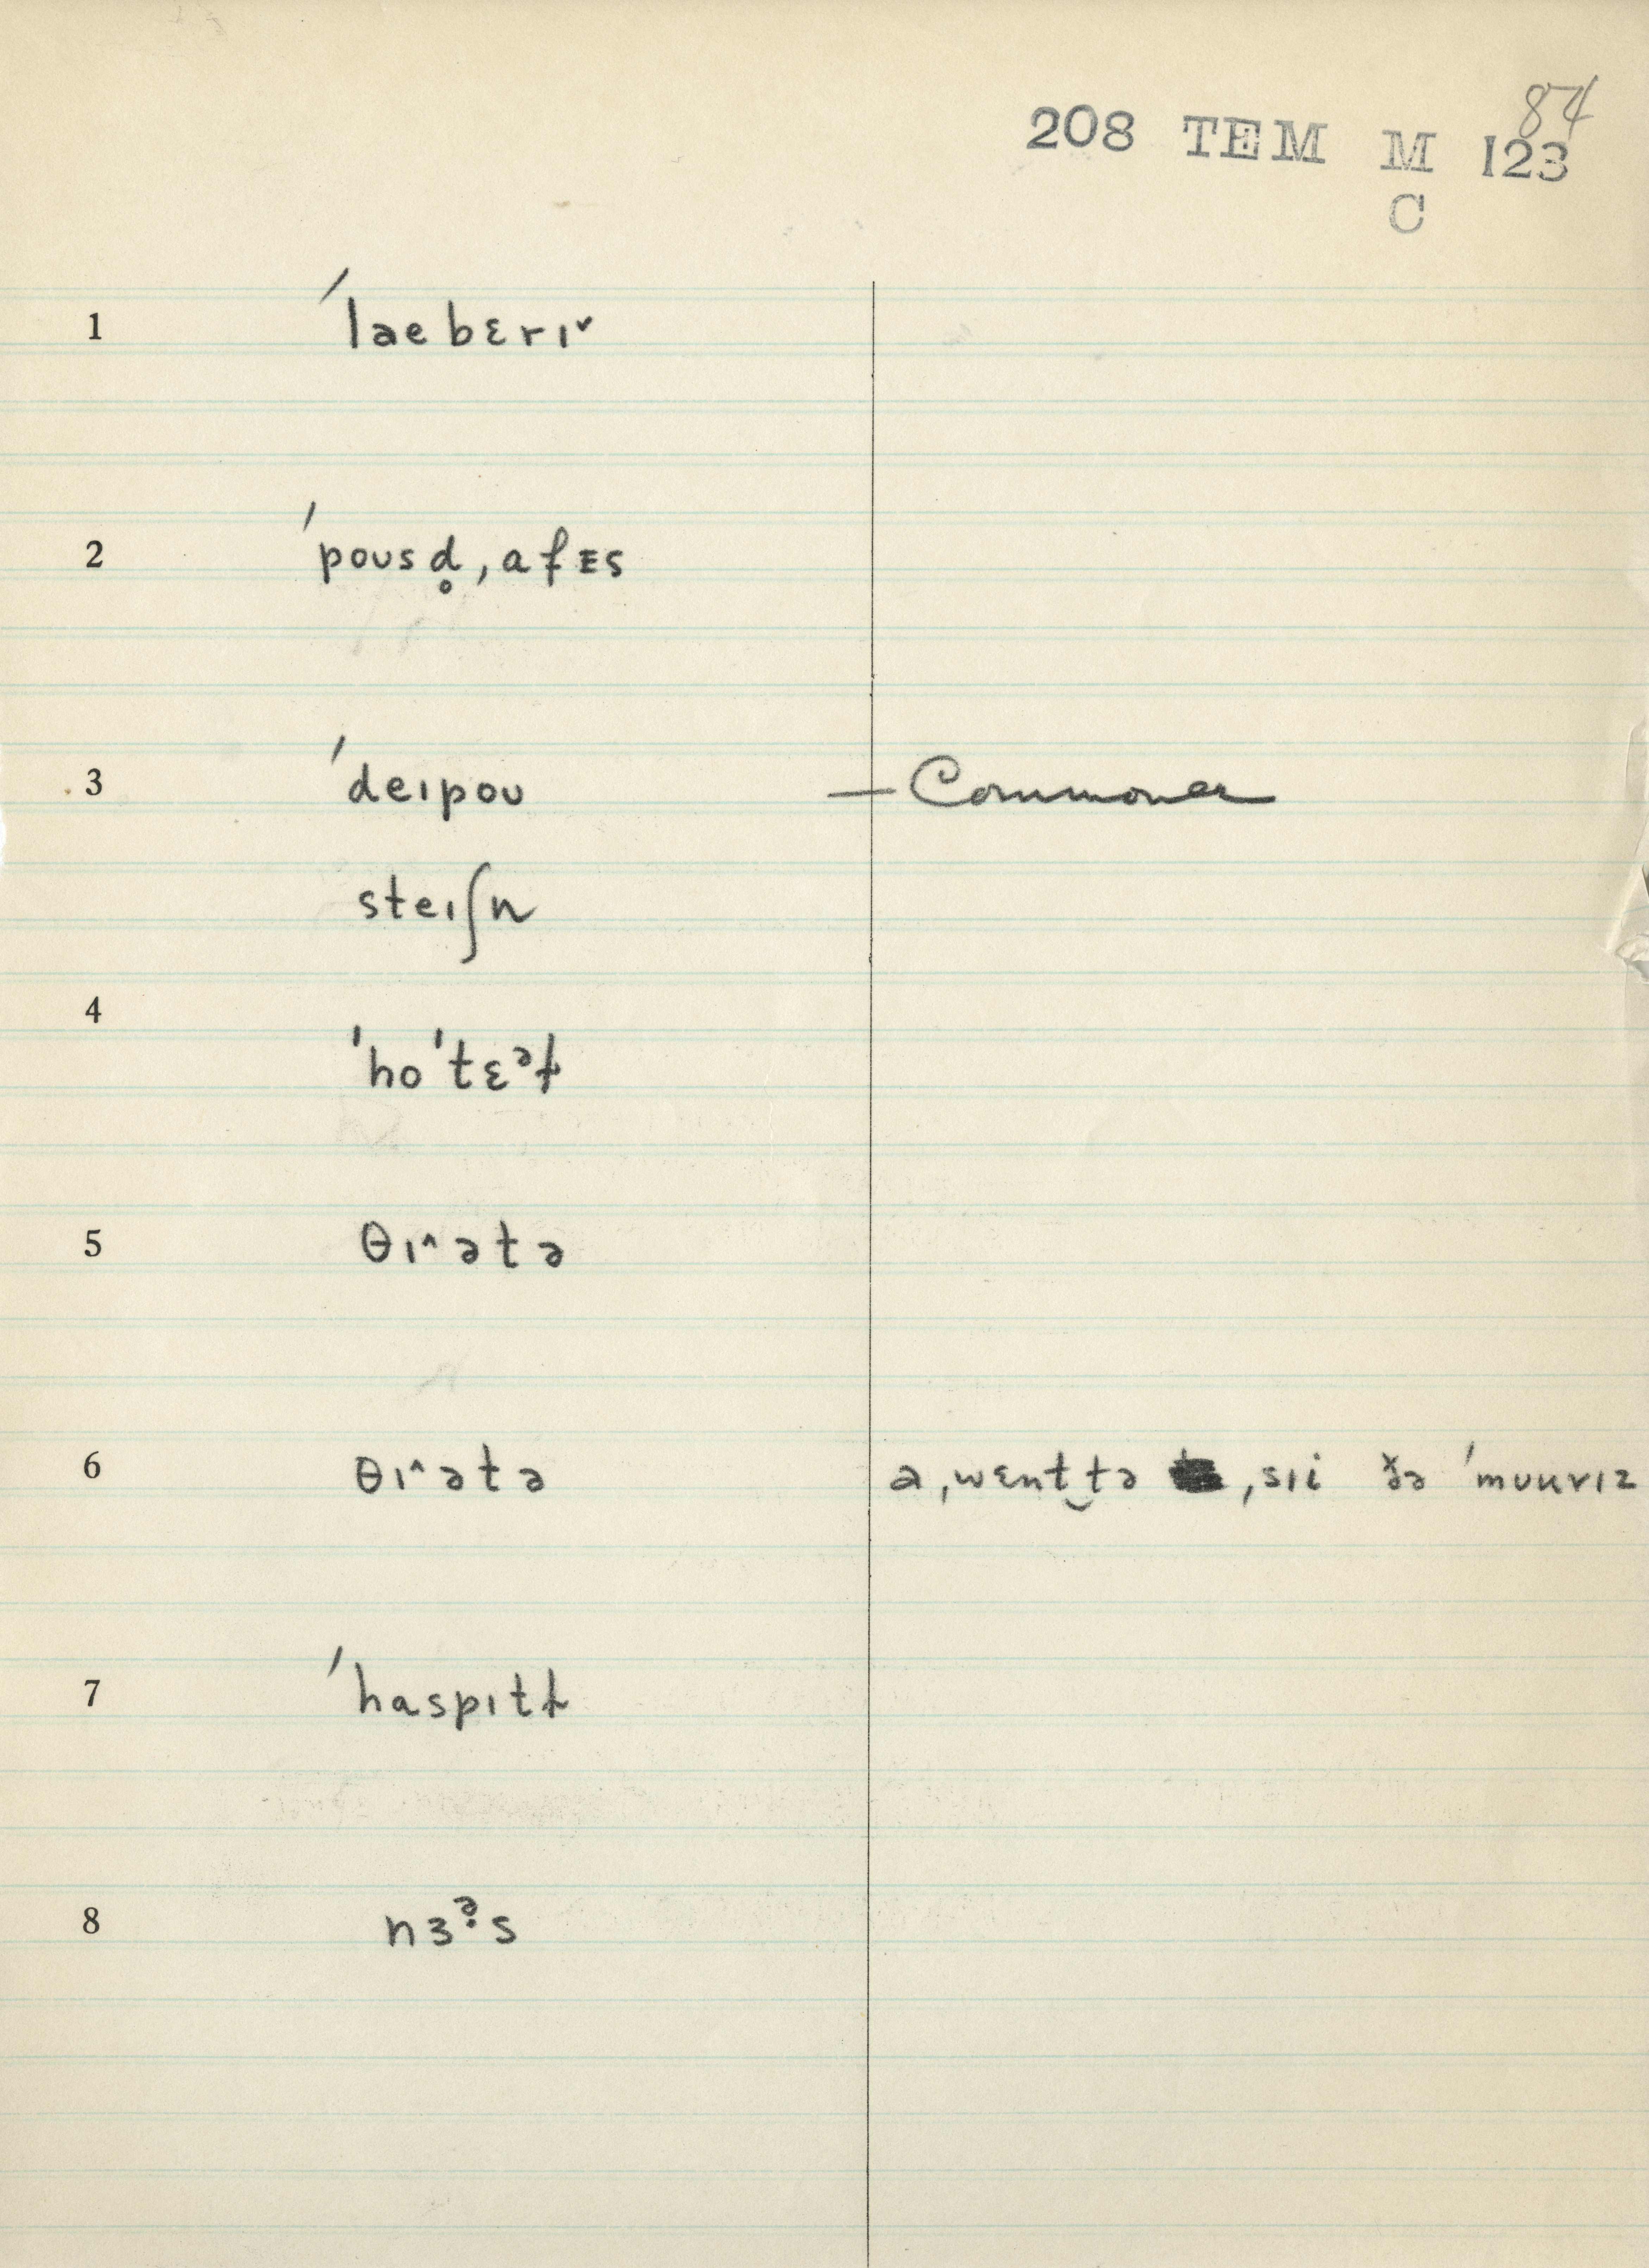 84
208 TEM M 123
C
1 ˈlaebɛrɪ˅
2 ˈpoʊsd̥ ˌɑfᴇs
3 ˈdeɪpoʊ — Commoner
steɪʃn
4 ˈhoˈtɛᵊɫ
5 θɪ˄ətə
6 θɪ˄ətə ə ˌwɛnt‿tə ˌsɪi ðə ˈmuuvɪz
7 ˈhɑspɪtɫ
8 nɜᵊ̣s